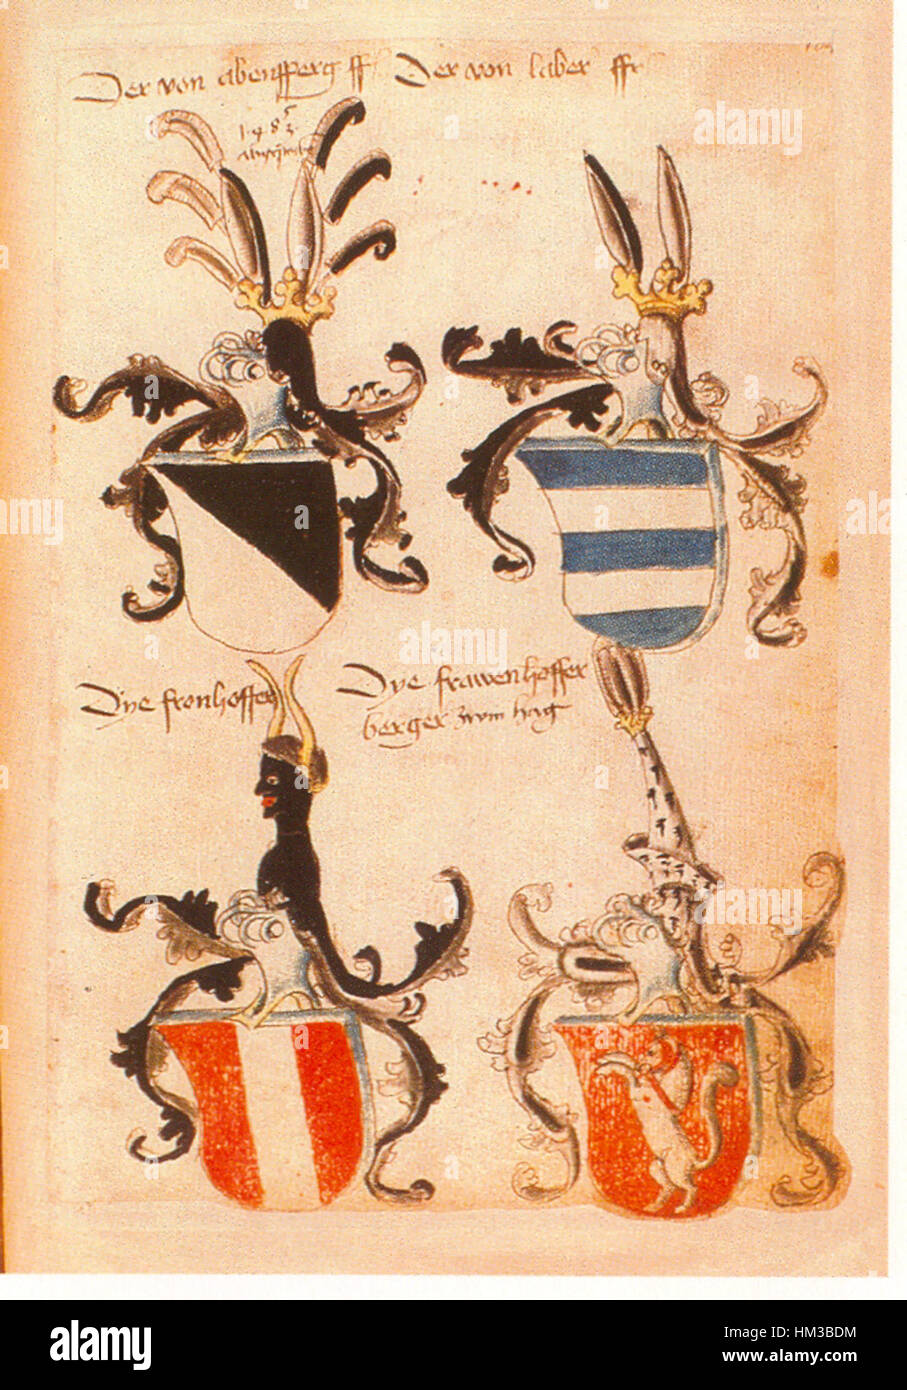 Der von abensperg ff
Der von laber ffr
1485
Dye fronhoffer
Dye frawenhoffer
berger zwm hag
alamy
Image ID: HM3BDM
www.alamy.com